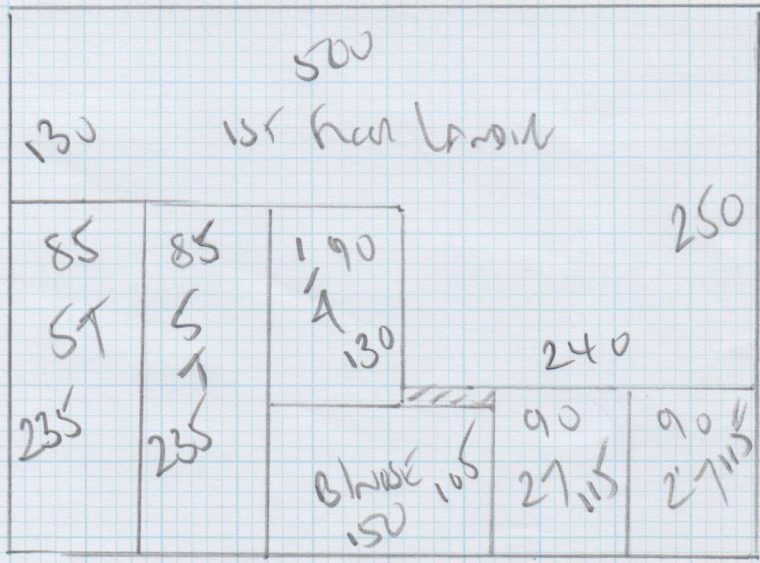 500
130
1ST Floor Landin
250
85
ST
235
85
S
T
235
90
A
130
240
B/NOSE 105
150
90
27 115
90
27 115